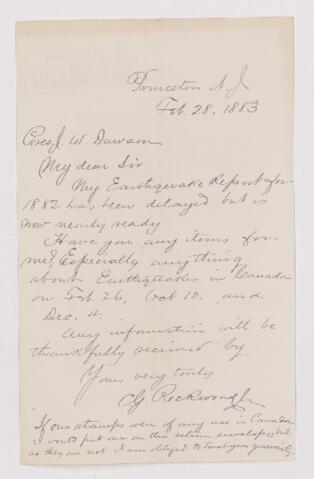 Princeton N.J.
Feb. 28. 1883
Pres. J. W. Dawson
My dear Sir
My Earthquake Report for
1882 has been delayed but is
now nearly ready
Have you any items for
me? Especially anything
about Earthquakes in Canada
on Feb. 26, Oct 10. and
Dec. 4.
Any information will be
thankfully received by
Yours very truly
C.G. Rockwood Jr
If our stamps were of any use in Canada
I would put one on the return envelopes, but
as they are not I am obliged to trust your generosity.